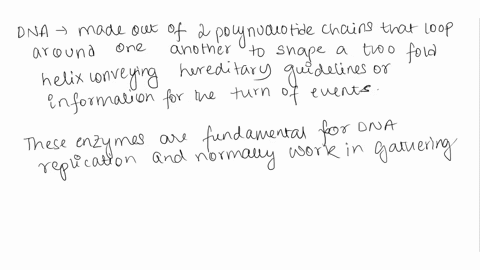 DNA → made out of 2 polynucleotide chains that loop
around one another to shape a two fold
helix conveying hereditary guidelines or
information for the turn of events.
These enzymes are fundamental for DNA
replication and normally work in gathering